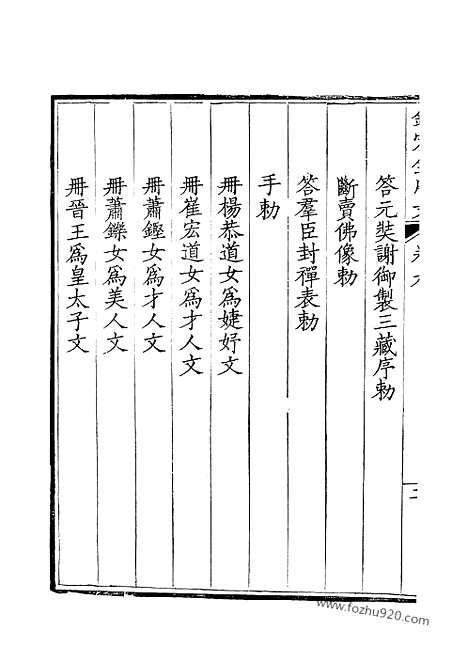 答元奘謝御製三藏序勅
斷賣佛像勅
答羣臣封禪表勅
手勅
冊楊恭道女爲婕妤文
冊崔宏道女爲才人文
冊蕭鏗女爲才人文
冊蕭鑠女爲美人文
冊晉王爲皇太子文
www.fozhu920.com